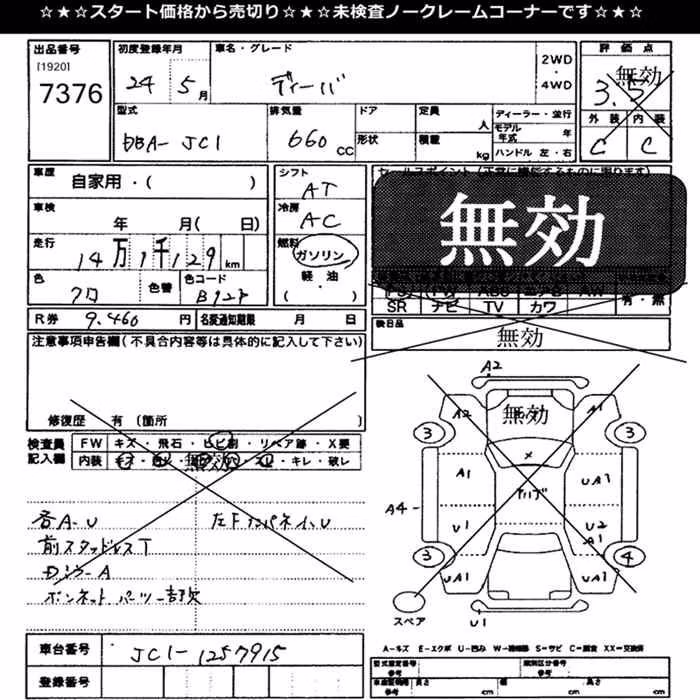 ☆★☆★スタート価格から売切り☆★☆★未検査ノークレームコーナーです☆★☆
出品番号
[1920]
7376
初度登録年月
24 5月
車名・グレード
ディーバ
2WD
・
4WD
評価点
無効
3.5
外装 内装
C C
型式
DBA- JC1
排気量
660 CC
ドア
形状
定員
人
積載
kg
ディーラー・並行
モデル年式 年
ハンドル 左・右
車歴
自家用・( )
シフト
AT
車検
年 月( 日)
冷房
AC
走行
14万1千129 km
燃料
ガソリン
軽・油
( )
色
クロ
色替
色コード
無効
SR ナビ TV カワ
有・無
R券 9.460 円
名変通知期限 月 日
検日品
無効
注意事項申告欄(不具合内容等は具体的に記入して下さい)
修復歴 有(箇所 )
検査員
記入欄
FW キズ・飛石・ヒビ割・リペア跡・X要
内装
無効
キレ・破レ
各A.U
前スタッドレスT
ボンネット
A2
A2
無効
A1
3
3
A1
UA1
A4
U1
U2
A1
3
4
UA1
UA1
スペア
U1
A-キズ E-エクボ U-凹み
S-サビ
XX-交換済
車台番号
JC1-1257915
登録番号
型式指定番号
参考
類別区分番号
参考
長さ cm
幅 cm
高さ cm